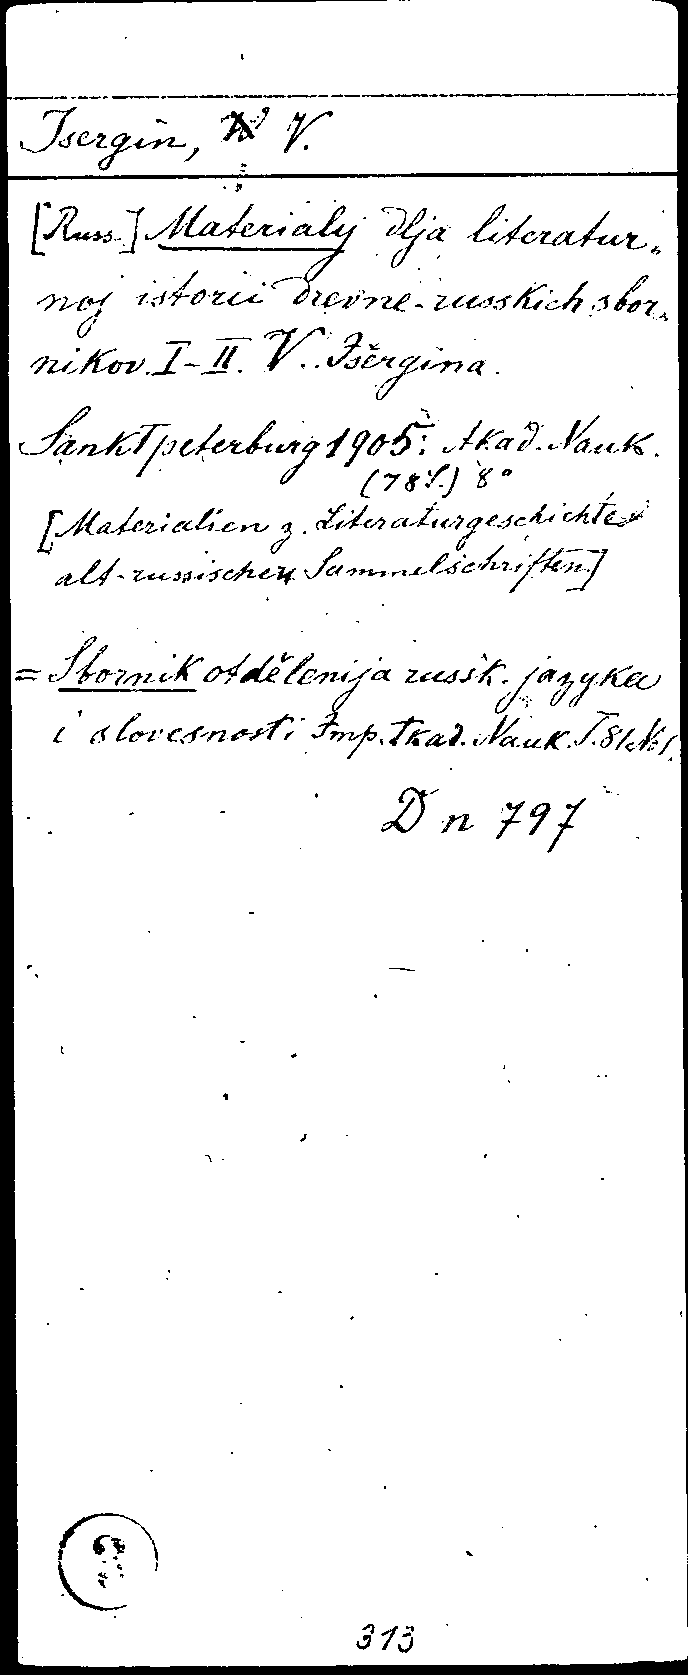 Isergin, V.
[Russ.] Materialy dlja literatur-
noj istorii drevne-russkich sbor-
nikov. I-II. V. Isěrgina.
Sanktpeterburg 1905: Akad. Nauk.
(78 S.) 8°
[Materialien z. Literaturgeschichte
alt-russischer Sammelschriften]
= Sbornik otdělenija russk. jazyka
i slovesnosti Imp. Akad. Nauk. T. 81, № 1.
D n 797
313